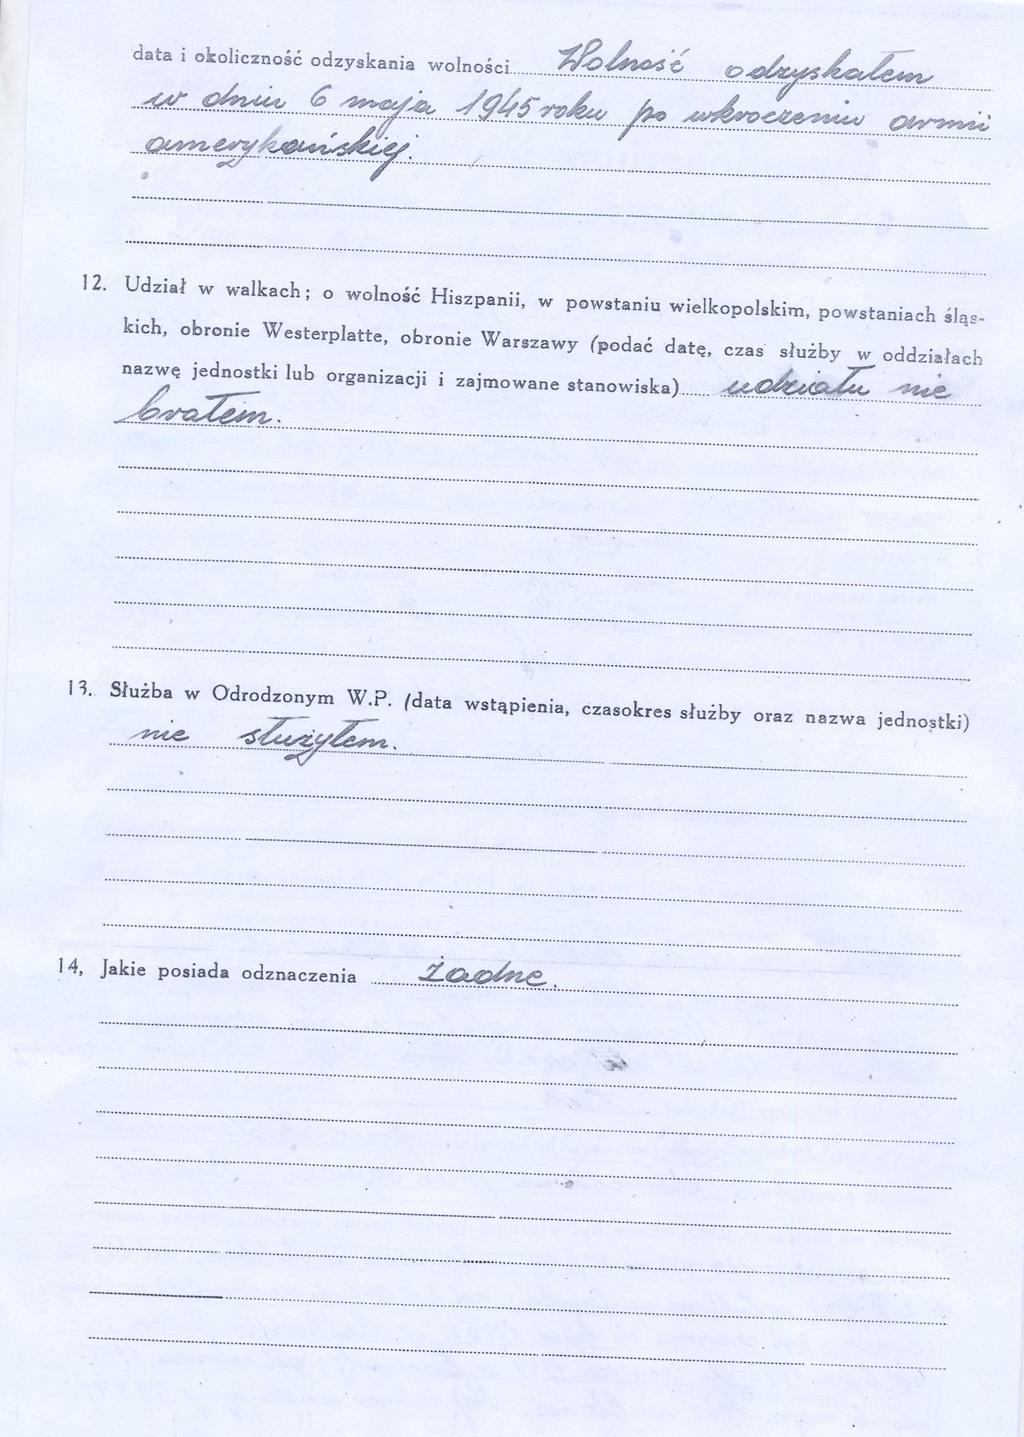 data i okoliczność odzyskania wolności Wolność odzyskałem
w dniu 6 maja 1945 roku po wkroczeniu armii
amerykańskiej.
12. Udział w walkach; o wolność Hiszpanii, w powstaniu wielkopolskim, powstaniach śląs-
kich, obronie Westerplatte, obronie Warszawy (podać datę, czas służby w oddziałach
nazwę jednostki lub organizacji i zajmowane stanowiska) udziału nie
brałem.
13. Służba w Odrodzonym W.P. (data wstąpienia, czasokres służby oraz nazwa jednostki)
nie służyłem.
14, Jakie posiada odznaczenia żadne.